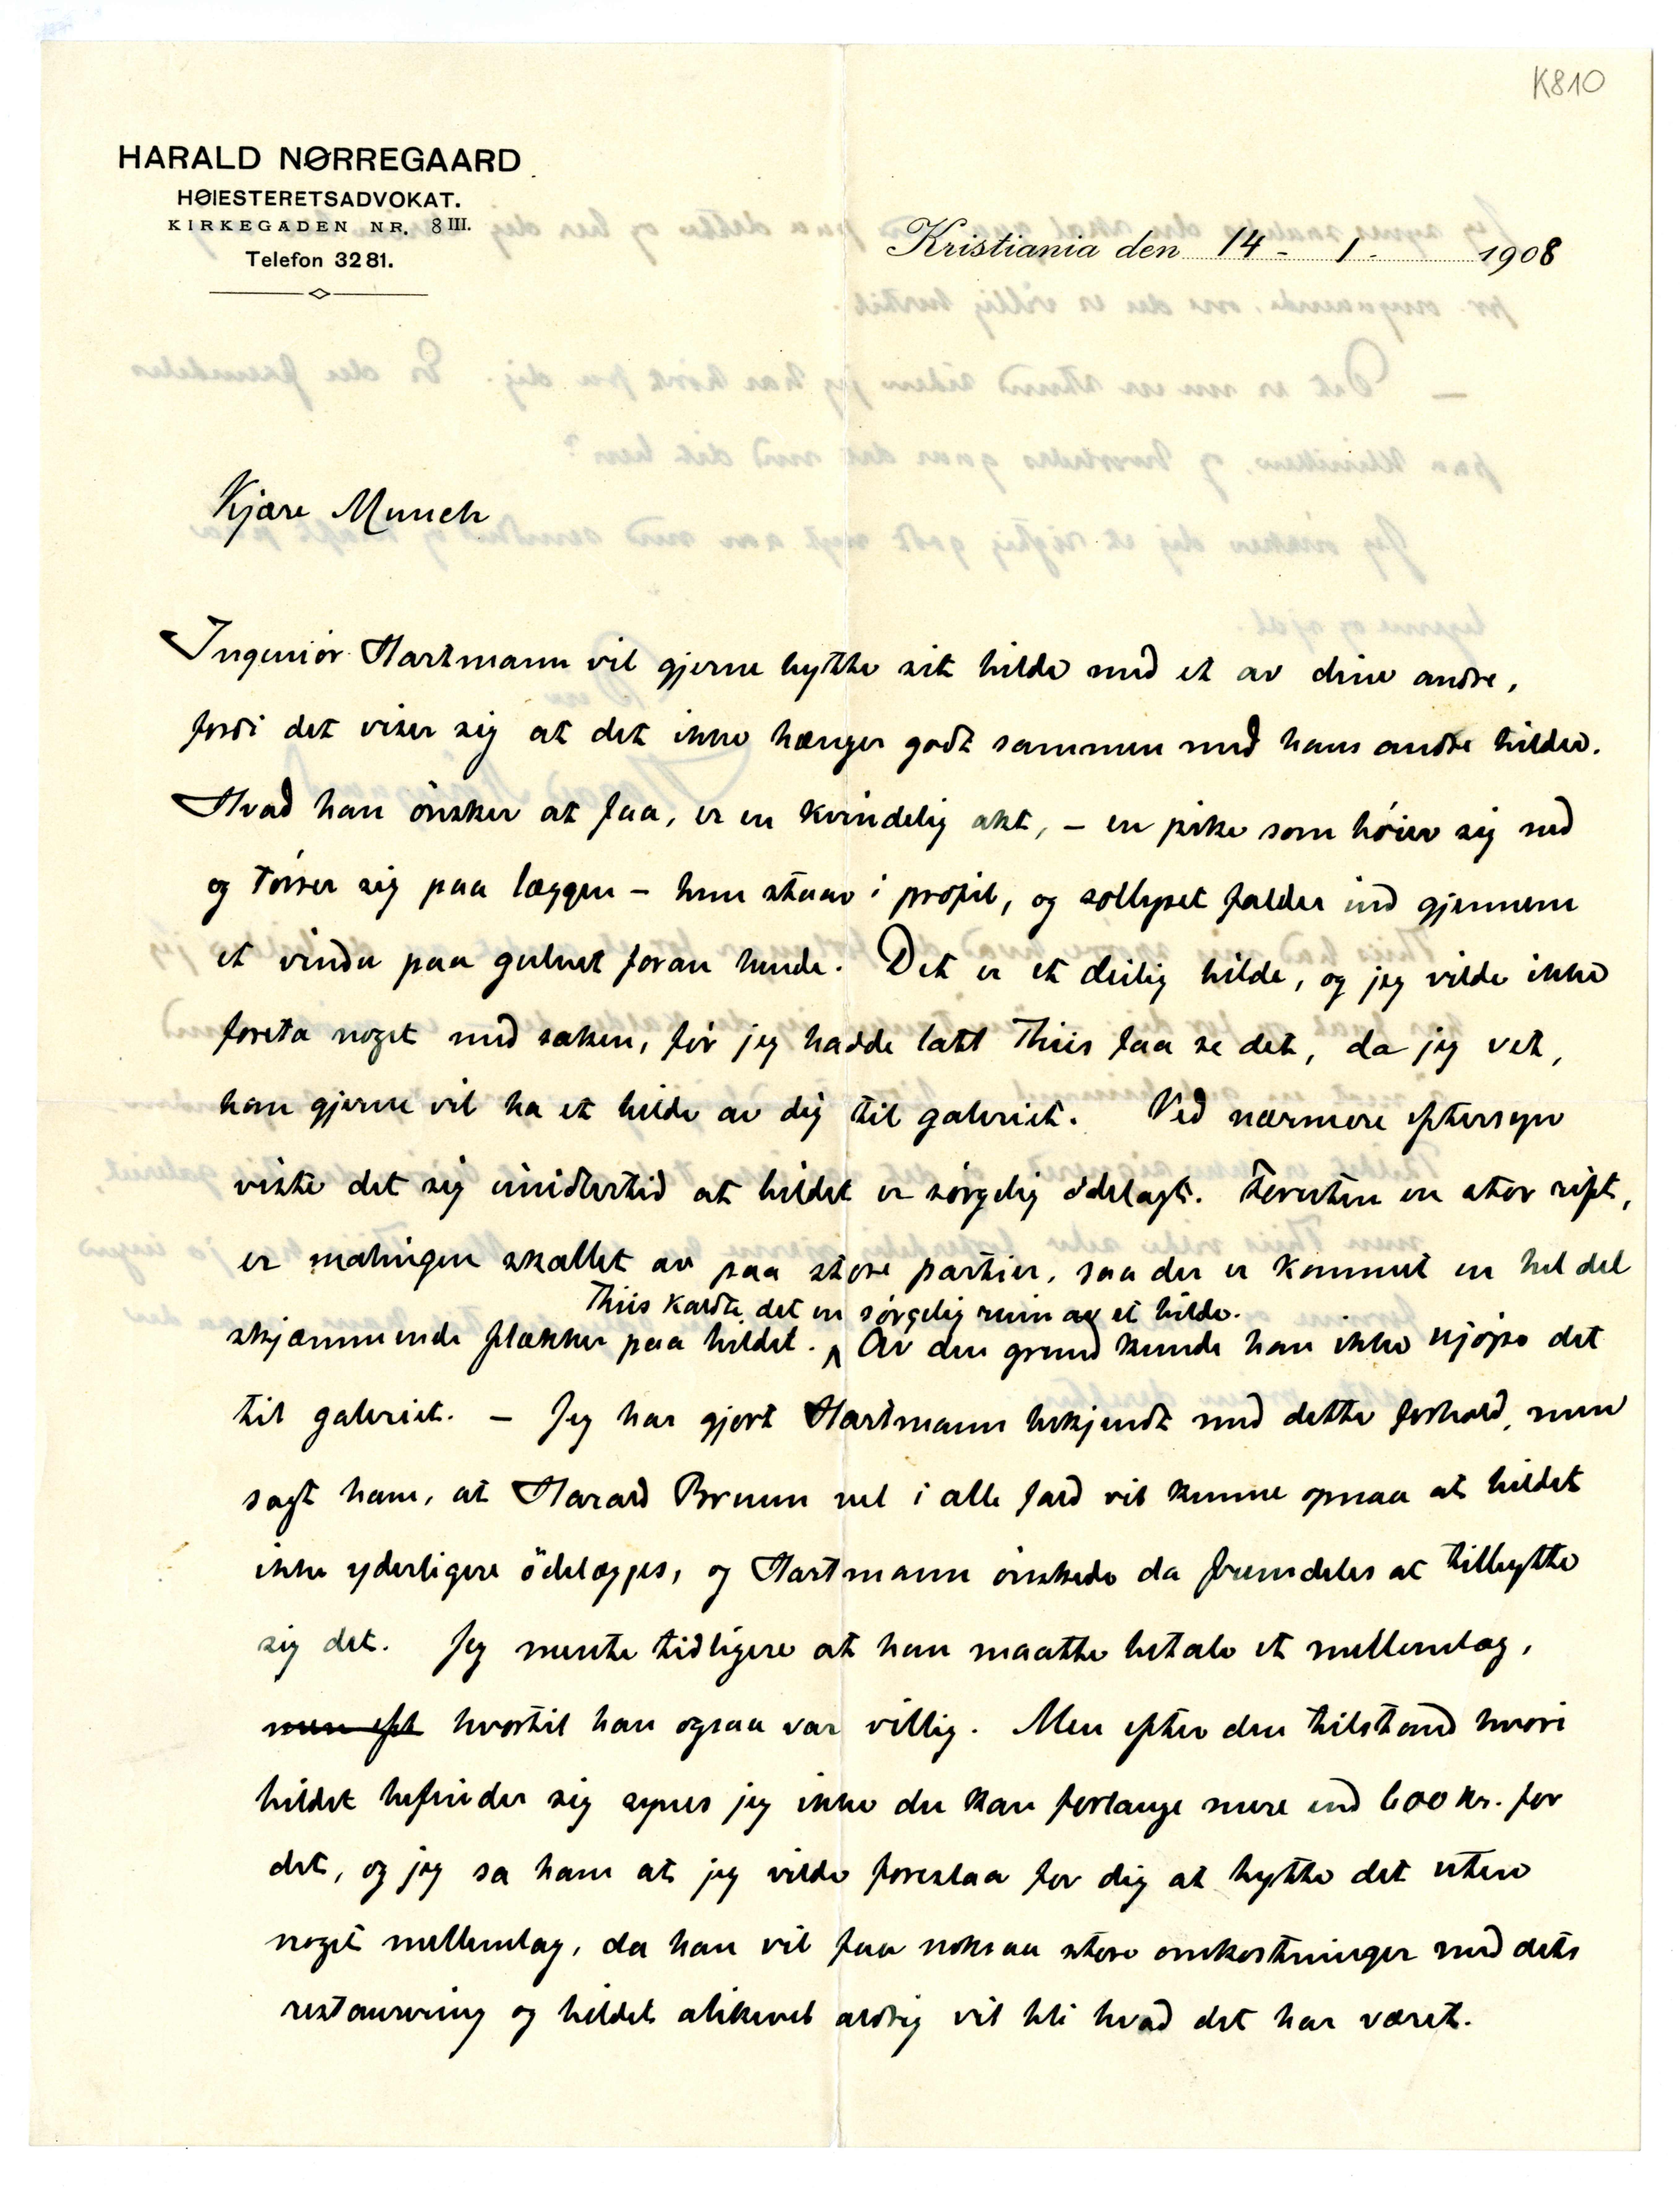 K810
HARALD NØRREGAARD
HØIESTERETSADVOKAT.
KIRKEGADEN NR. 8 III.
Telefon 3281.
Kristiania den 14 - 1. 1908
Kjære Munch
Ingeniør Hartmann vil gjerne bytte sit bilde med et av dine andre,
fordi det viser sig at det ikke hænger godt sammen med hans andre bilder.
Hvad han ønsker at faa, er en kvindelig akt, – en pike som bøier sig ned
og tørrer sig paa læggen – hun staar i profil, og sollyset falder ind gjennem
et vindu paa gulvet foran hende. Det er et deilig bilde, og jeg vilde ikke
foreta noget med saken, før jeg hadde latt Thiis faa se det, da jeg vet,
han gjerne vil ha et bilde av dig til galeriet. Ved nærmere eftersyn
viste det sig imidlertid at bildet er sørgelig ödelagt. Foruten en stor ript,
er malingen skallet av paa store partier, saa der er kommet en hel del
Thiis kaldte det en sørgelig ruin av et bilde.
skjæmmende flækker paa bildet. Av den grund kunde han ikke kjøpe det
til galeriet. – Jeg har gjort Hartmann bekjendt med dette forhold, men
sagt ham, at Harald Brunn vel i alle fald vil kunne opnaa at bildet
ikke yderligere ödelægges, og Hartmann ønskede da fremdeles at tilbytte
sig det. Jeg mente tidligere at han maatte betale et mellemlag,
men eft hvortil han ogsaa var villig. Men efter den tilstand hvori
bildet befinder sig synes jeg ikke du kan forlange mere end 600 kr. for
det, og jeg sa ham at jeg vilde foreslaa for dig at bytte det uten
noget mellemlag, da han vil faa noksaa store omkostninger med dets
restaurering og bildet alikevel aldrig vil bli hvad det har været.